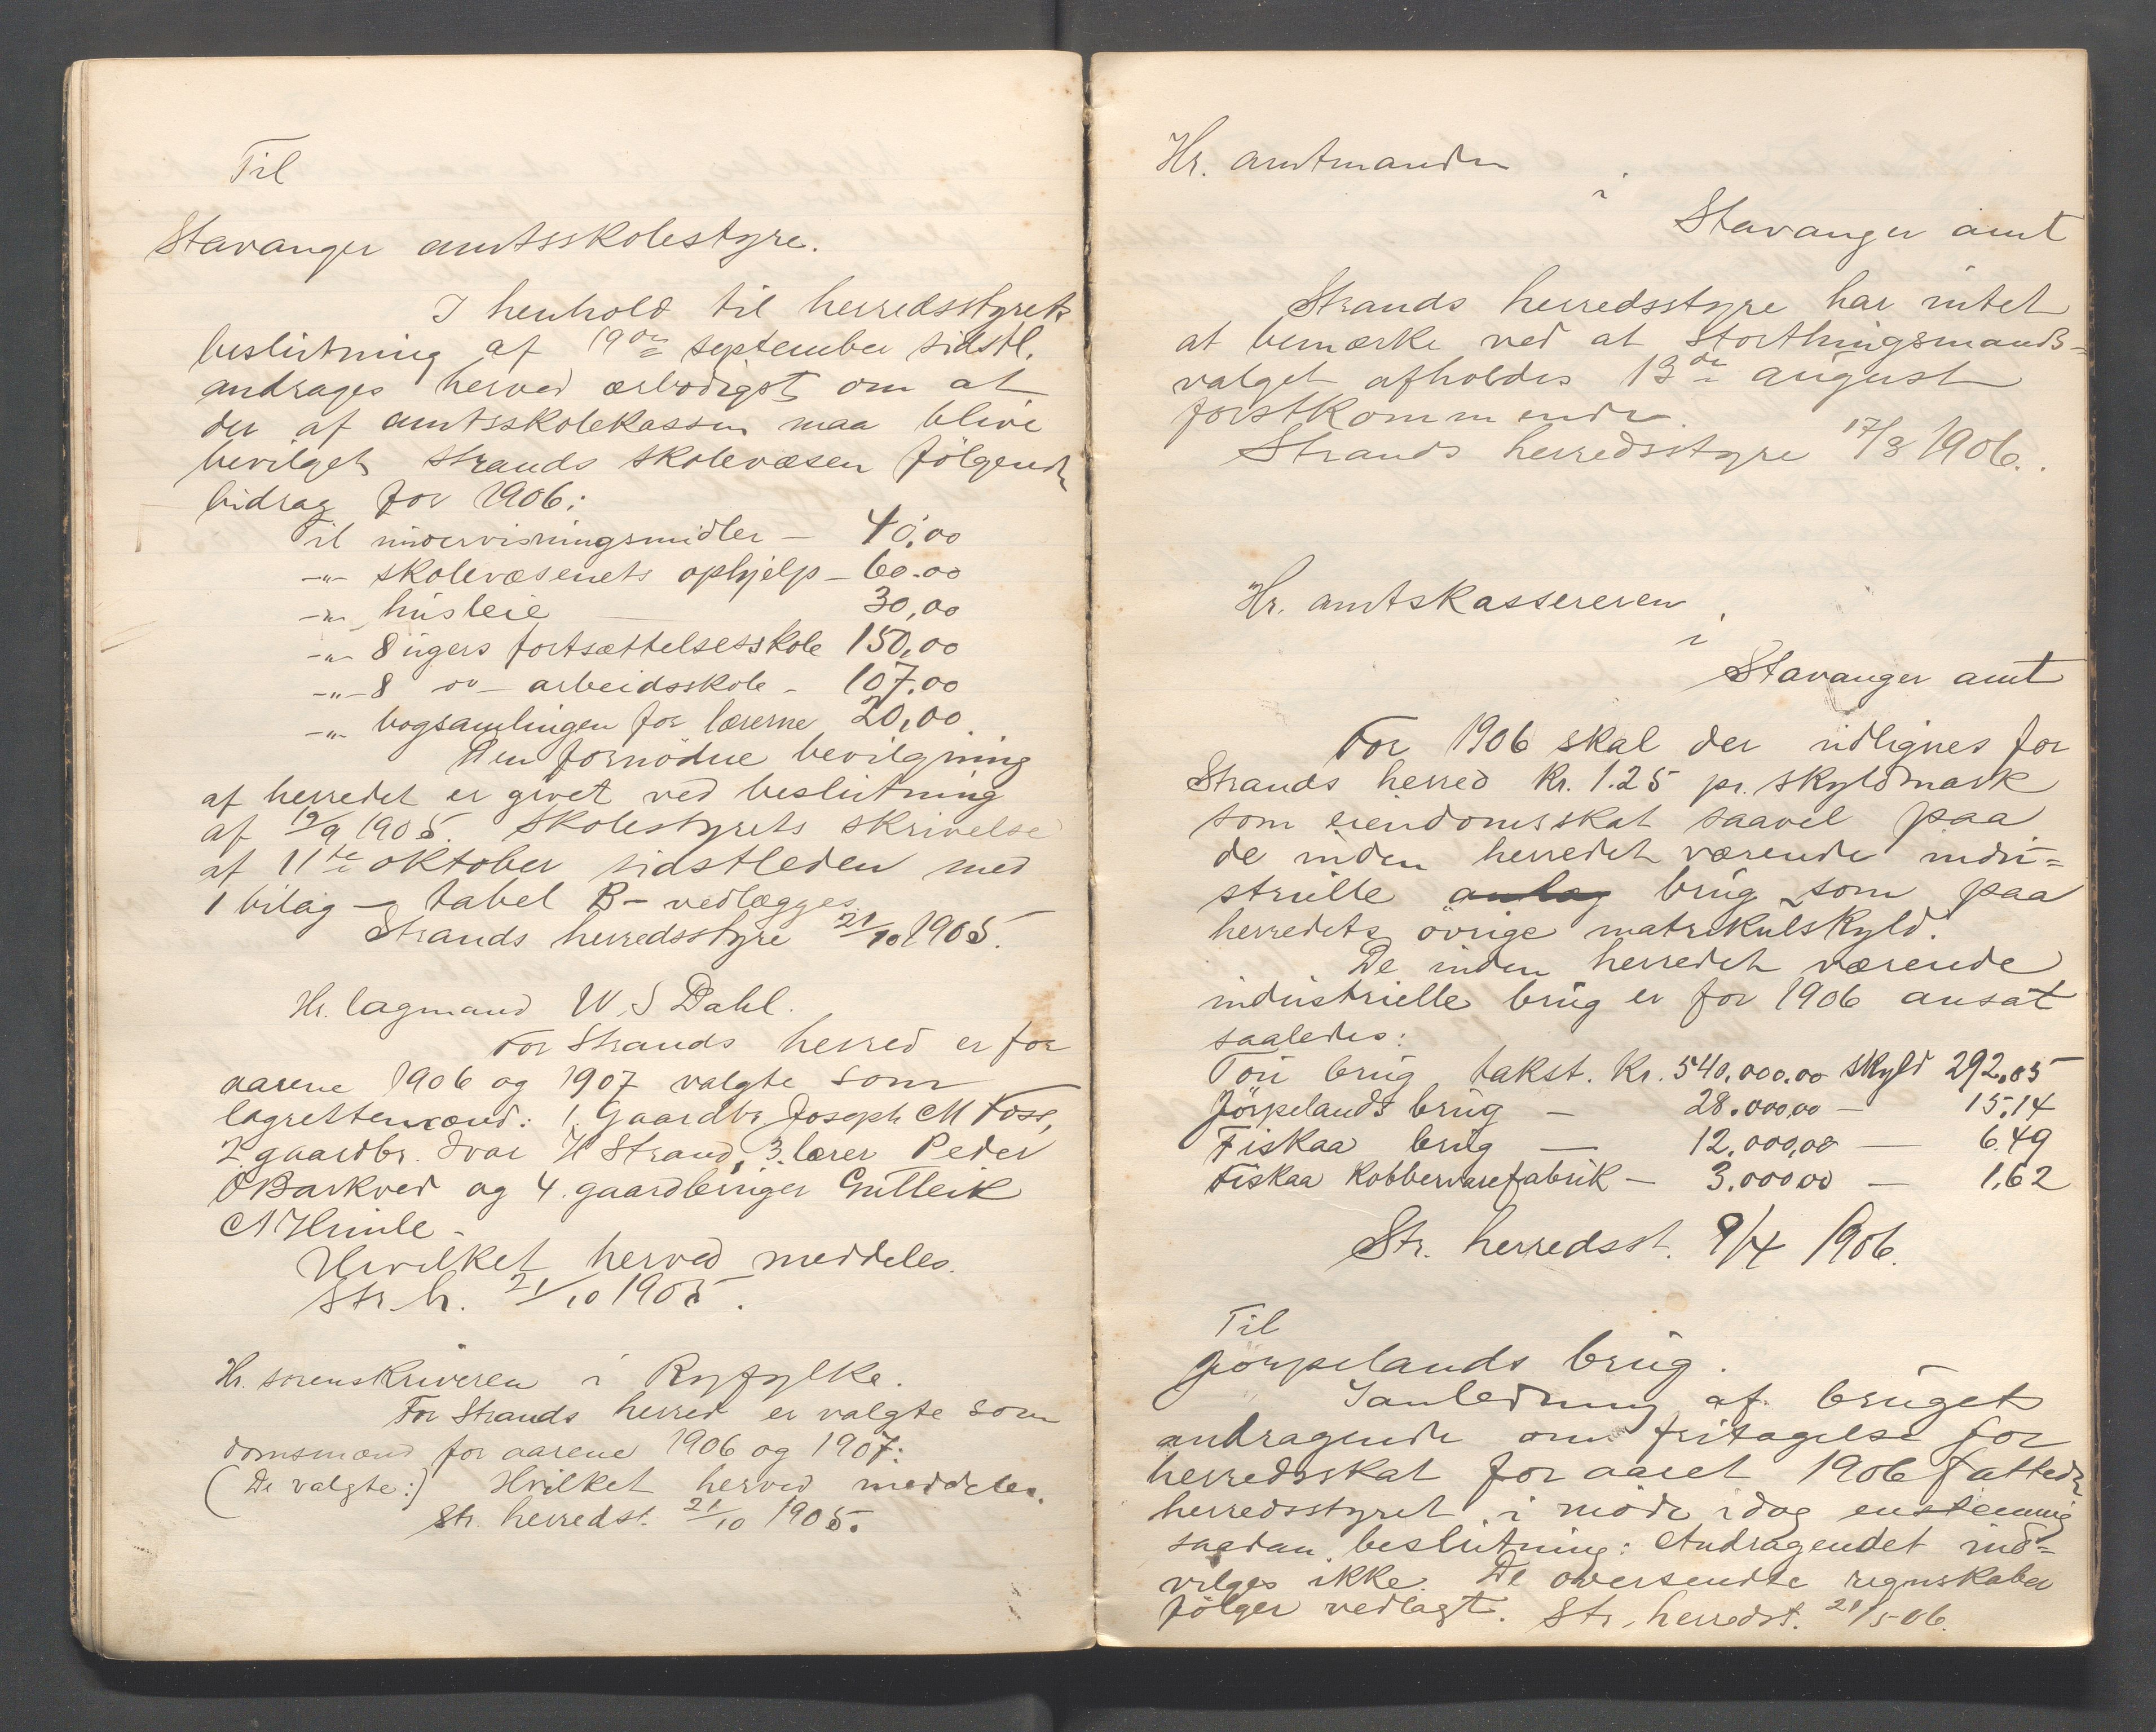 Til
Stavanger amtsskolestyre.
I henhold til herredsstyrets
beslutning af 19de september sidstl.
andrages herved ærbødigst om at
der af amtsskolekassen maa blive
bevilget Strands skolevæsen følgende
bidrag for 1906:
Til undervisningsmidler – 40,00
-"- skolevæsenets ophjelp – 60.00
-"- husleie — 30,00
-"- 8 ugers fortsættelsesskole 150,00
-"- 8 -"- arbeidsskole – 107.00
-"- bogsamlingen for lærerne 20,00.
Den fornødne bevilgning
af herredet er givet ved beslutning
af 19/9 1905. Skolestyrets skrivelse
af 11te oktober sidstleden med
1 bilag – tabel B – vedlægges.
Strands herredsstyre 21/10 1905.
Hr. lagmand W. S Dahl.
For Strands herred er for
aarene 1906 og 1907 valgte som
lagrettemænd: 1. Gaardbr. Joseph M Foss,
2 gaardbr. Ivar H Strand, 3. lærer Peder
O Barkved og 4. gaardbruger Gutleik
A Himle –
Hvilket herved meddeles.
Str. h. 21/10 1905.
Hr. sorenskriveren i Ryfylke.
For Strands herred er valgte som
domsmænd for aarene 1906 og 1907:
(De valgte:) Hvilket herved meddeles.
Str. herredst. 21/10 1905.
Hr. amtmanden
i
Stavanger amt
Strands herredsstyre har intet
at bemærke ved at Storthingsmands=
valget afholdes 13de august
førstkommende.
Strands herredsstyre 17/3 1906.
Hr. amtskassereren
i
Stavanger amt
For 1906 skal der udlignes for
Strands herred Kr. 1.25 pr. skyldmark
som eiendomsskat saavel paa
de inden herredet værende indu=
strielle anlæg brug som paa
herredets øvrige matrikulskyld.
De inden herredet værende
industrielle brug er for 1906 ansat
saaledes:
Tou brug takst. Kr. 540,000.00 skyld 292,05
Jørpelands brug – 28.000,00 – 15.14
Fiskaa brug – 12,000,00 – 6.49
Fiskaa Kobbervarefabrik – 3.000,00 – 1,62
Str. herredsst. 9/4 1906.
Til
Jørpelands brug.
I anledning af bruget
andragende om fritagelse for
herredsskat for aaret 1906 fattede
herredsstyret i møde idag enstemmig
saadan beslutning: Andragendet ind=
vilges ikke. De oversendte regnskaber
følger vedlagt. Str. herredst. 21/5 06.